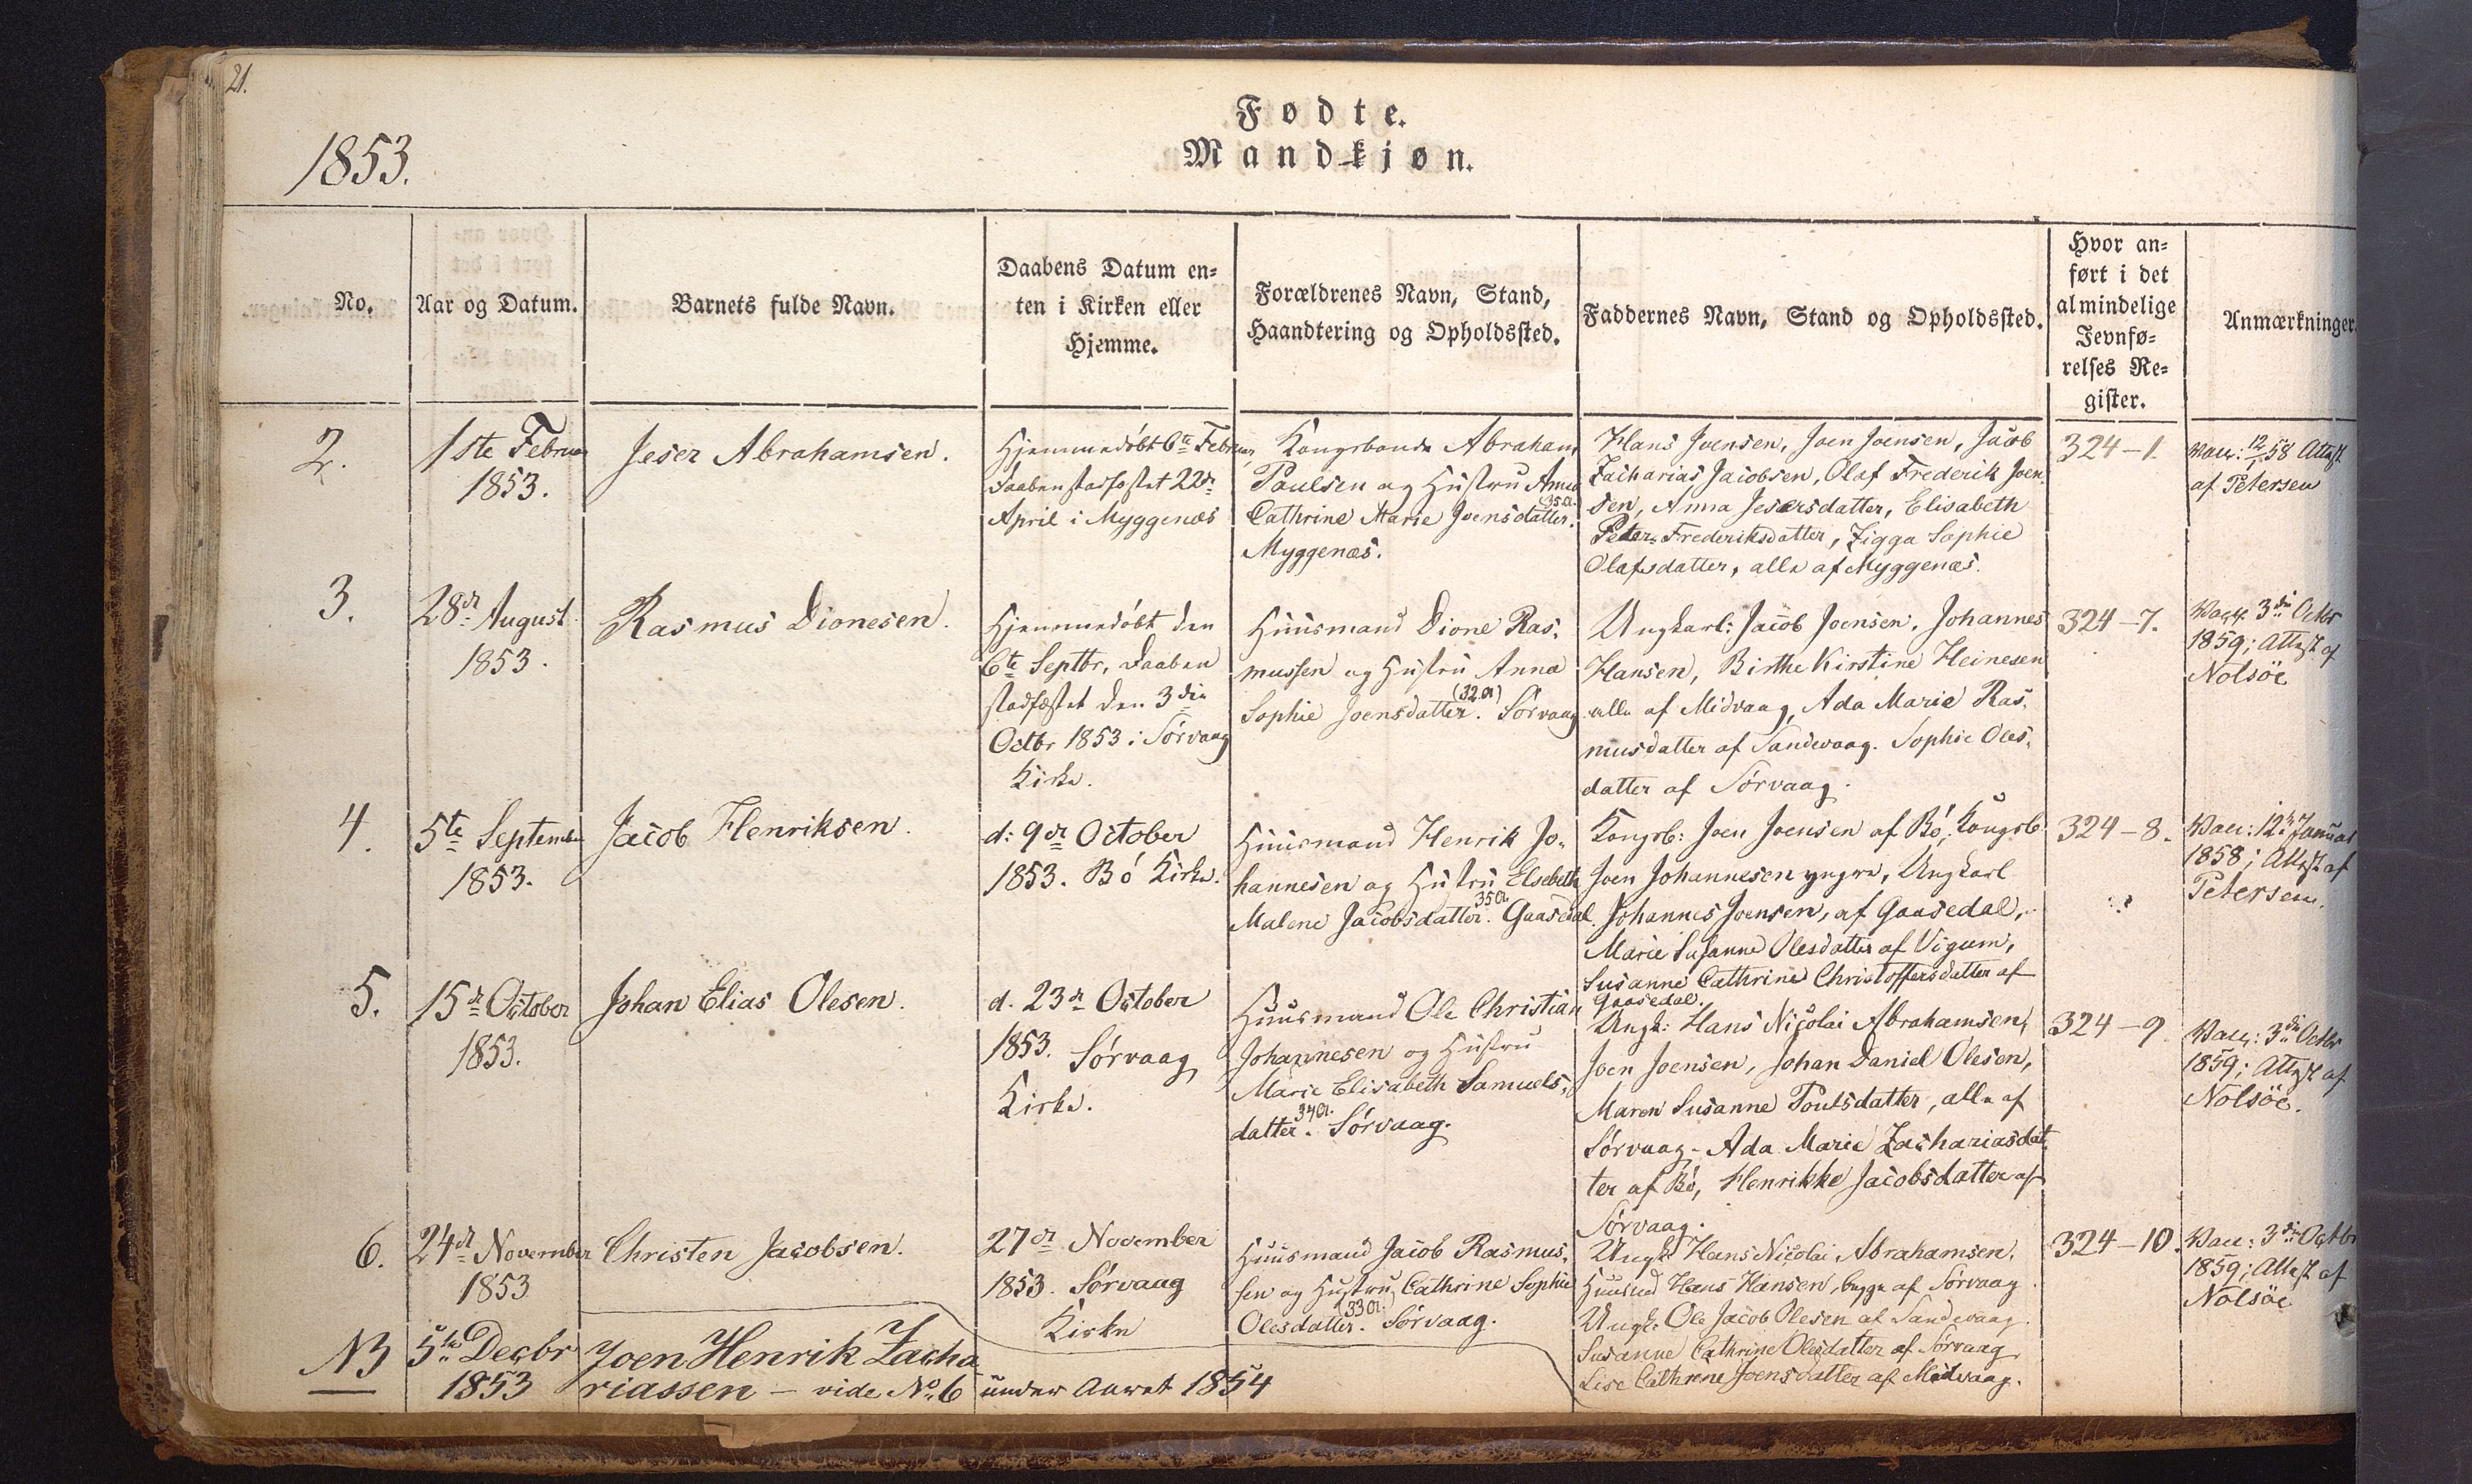 21.
1853.
Fødte.
Mandkjøn.
No.
Aar og Datum.
Barnets fulde Navn.
Daabens Datum en=
ten i Kirken eller
Hjemme.
Forældrenes Navn, Stand,
Haandtering og Opholdssted.
Faddernes Navn, Stand og Opholdssted.
Hvor an=
ført i det
almindelige
Jevnfø=
relses Re=
gister.
Anmærkninger.
2.
1ste Februar
1853.
Jeser Abrahamsen.
Hjemmedöbt 6te Februar,
Daaben stadfæstet 22de
April i Myggenæs
Kongsbonde Abraham
Poulsen og Hustru Anna
Cathrine Marie Joensdatter. (35 a.)
Myggenæs.
Hans Joensen, Joen Joensen, Jacob
Zacharias Jacobsen, Olaf Frederik Joen
sen, Anna Jesersdatter, Elisabeth
Peter Frederiksdatter, Zigga Sophie
Olafsdatter, alle af Myggenæs.
324-1.
Vacc: 12/1 58 Attest
af Petersen
3.
28de August
1853.
Rasmus Dionesen.
Hjemmedöbt den
6te Septbr, Daaben
stadfæstet den 3die
Octbr 1853 i Sörvaag
Kirke.
Huusmand Dione Ras=
mussen og Hustru Anna
Sophie Joensdatter. (32 a) Sörvaag
Ungkarl: Jacob Joensen, Johannes
Hansen, Birthe Kirstine Heinesen
alle af Midvaag, Ada Marie Ras=
musdatter af Sandevaag. Sophie Oles=
datter af Sörvaag.
324-7.
Vacc: 3die Octbr
1859; Attest af
Nolsöe
4.
5te September
1853.
Jacob Henriksen.
d: 9de October
1853. Bö Kirke.
Huusmand Henrik Jo=
hannesen og Hustru Elsebeth
Malene Jacobsdatter. 35 a Gaasedal.
Kongsb: Joen Joensen af Bö, Kongsb.
Joen Johannesen yngre, Ungkarl
Johannes Joensen, af Gaasedal,
Marie Susanne Olesdatter af Vigum,
Susanne Cathrine Christoffersdatter af
Gaasedal.
324-8.
Vacc: 12te Januar
1858; Attest af
Petersen.
5.
15de October
1853.
Johan Elias Olesen.
d. 23de October
1853. Sörvaag
Kirke.
Huusmand Ole Christian
Johannesen og Hustru
Marie Elisabeth Samuels=
datter. 34 a. Sörvaag.
Ungk: Hans Nicolai Abrahamsen,
Joen Joensen, Johan Daniel Olesen,
Maren Susanne Poulsdatter, alle af
Sörvaag - Ada Marie Zachariasdat
ter af Bö, Henrikke Jacobsdatter af
Sörvaag.
324-9
Vacc: 3die Octbr
1859; Attest af
Nolsöe.
6.
24de November
1853
Christen Jacobsen.
27de November
1853. Sörvaag
Kirke
Huusmand Jacob Rasmus=
sen og Hustru Cathrine Sophie
Olesdatter. (33 a.) Sörvaag.
Ungk: Hans Nicolai Abrahamsen,
Huusmd Hans Hansen, begge af Sörvaag
Ungk: Ole Jacob Olesen af Sandevaag.
Susanne Cathrine Olesdatter af Sörvaag
Lise Cathrine Joensdatter af Midvaag.
324-10.
Vacc: 3die Octbr
1859; Attest af
Nolsöe
NB
5te Decbr
1853
Joen Henrik Zacha
riassen - vide No 6 under Aaret 1854